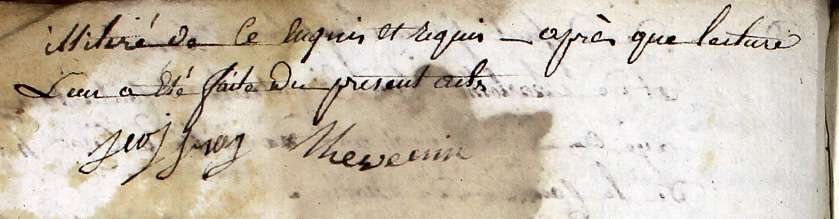 illitéré de ce enquis et requis - après que lecture
Leur a été faite du present acte
Thevenin